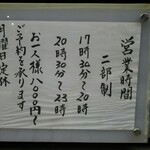 営業時間
二部制
17時30分〜20時
20時30分〜23時
お一人様八〇〇〇円で
ご予約を承ります
月曜日定休